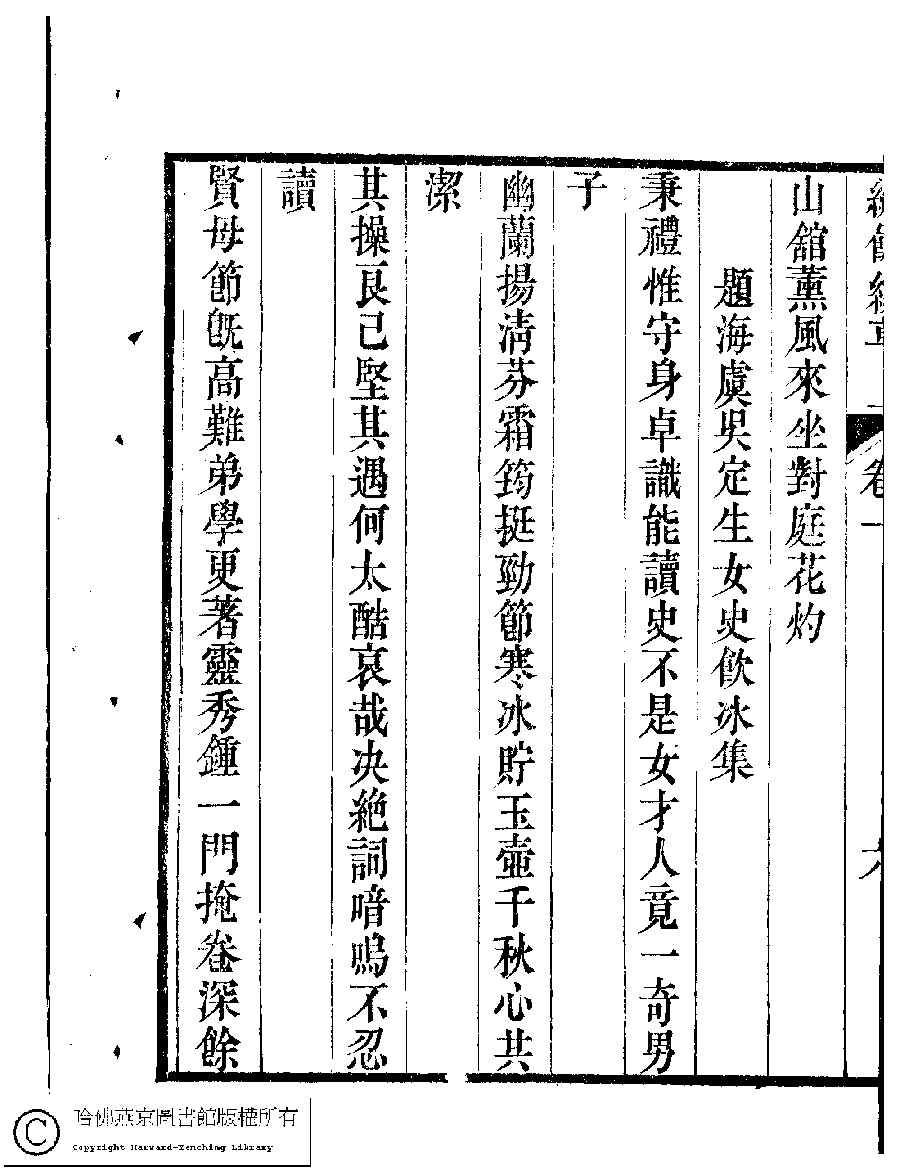 卷一
山舘薰風來坐對庭花灼
題海虞吳定生女史飮冰集
秉禮惟守身卓識能讀史不是女才人竟一奇男
子
幽蘭揚淸芬霜筠挺勁節寒冰貯玉壺千秋心共
潔
其操良已堅其遇何太酷哀哉决絶詞喑嗚不忍
讀
賢母節旣高難弟學更著靈秀鍾一門掩卷深餘
哈佛燕京圖書館版權所有
Copyright Harvard-Yenching Library